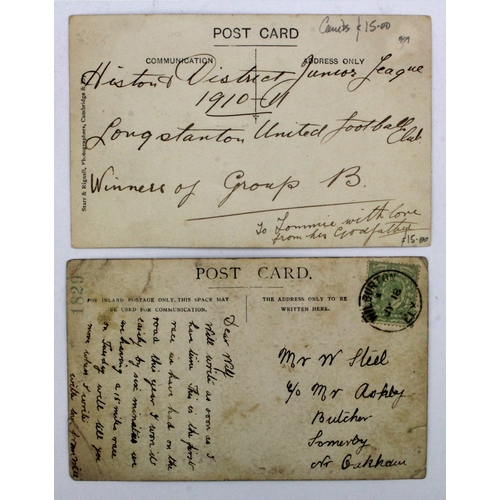 POST CARD
Cambs £15-00
COMMUNICATION
ADDRESS ONLY
Histon & District Junior League
1910-11
Longstanton United Football Club
Winners of Group B.
To Tommie with love
from his Godfather
£15-00
Starr & Rignall, Photographers, Cambridge &
1829
POST CARD.
FOR INLAND POSTAGE ONLY, THIS SPACE MAY
BE USED FOR COMMUNICATION.
THE ADDRESS ONLY TO BE
WRITTEN HERE.
WILBURTON
ELY
Dear Will
Will write as soon as I
have time. This is the first
race we have had on the
road this year I won it
easily by six minutes
on having a 15 miles race
on Tuesday will tell you
more when I write
with love from
Mr W Steel
c/o Mr Ashby
Butcher
Somerby
Nr Oakham